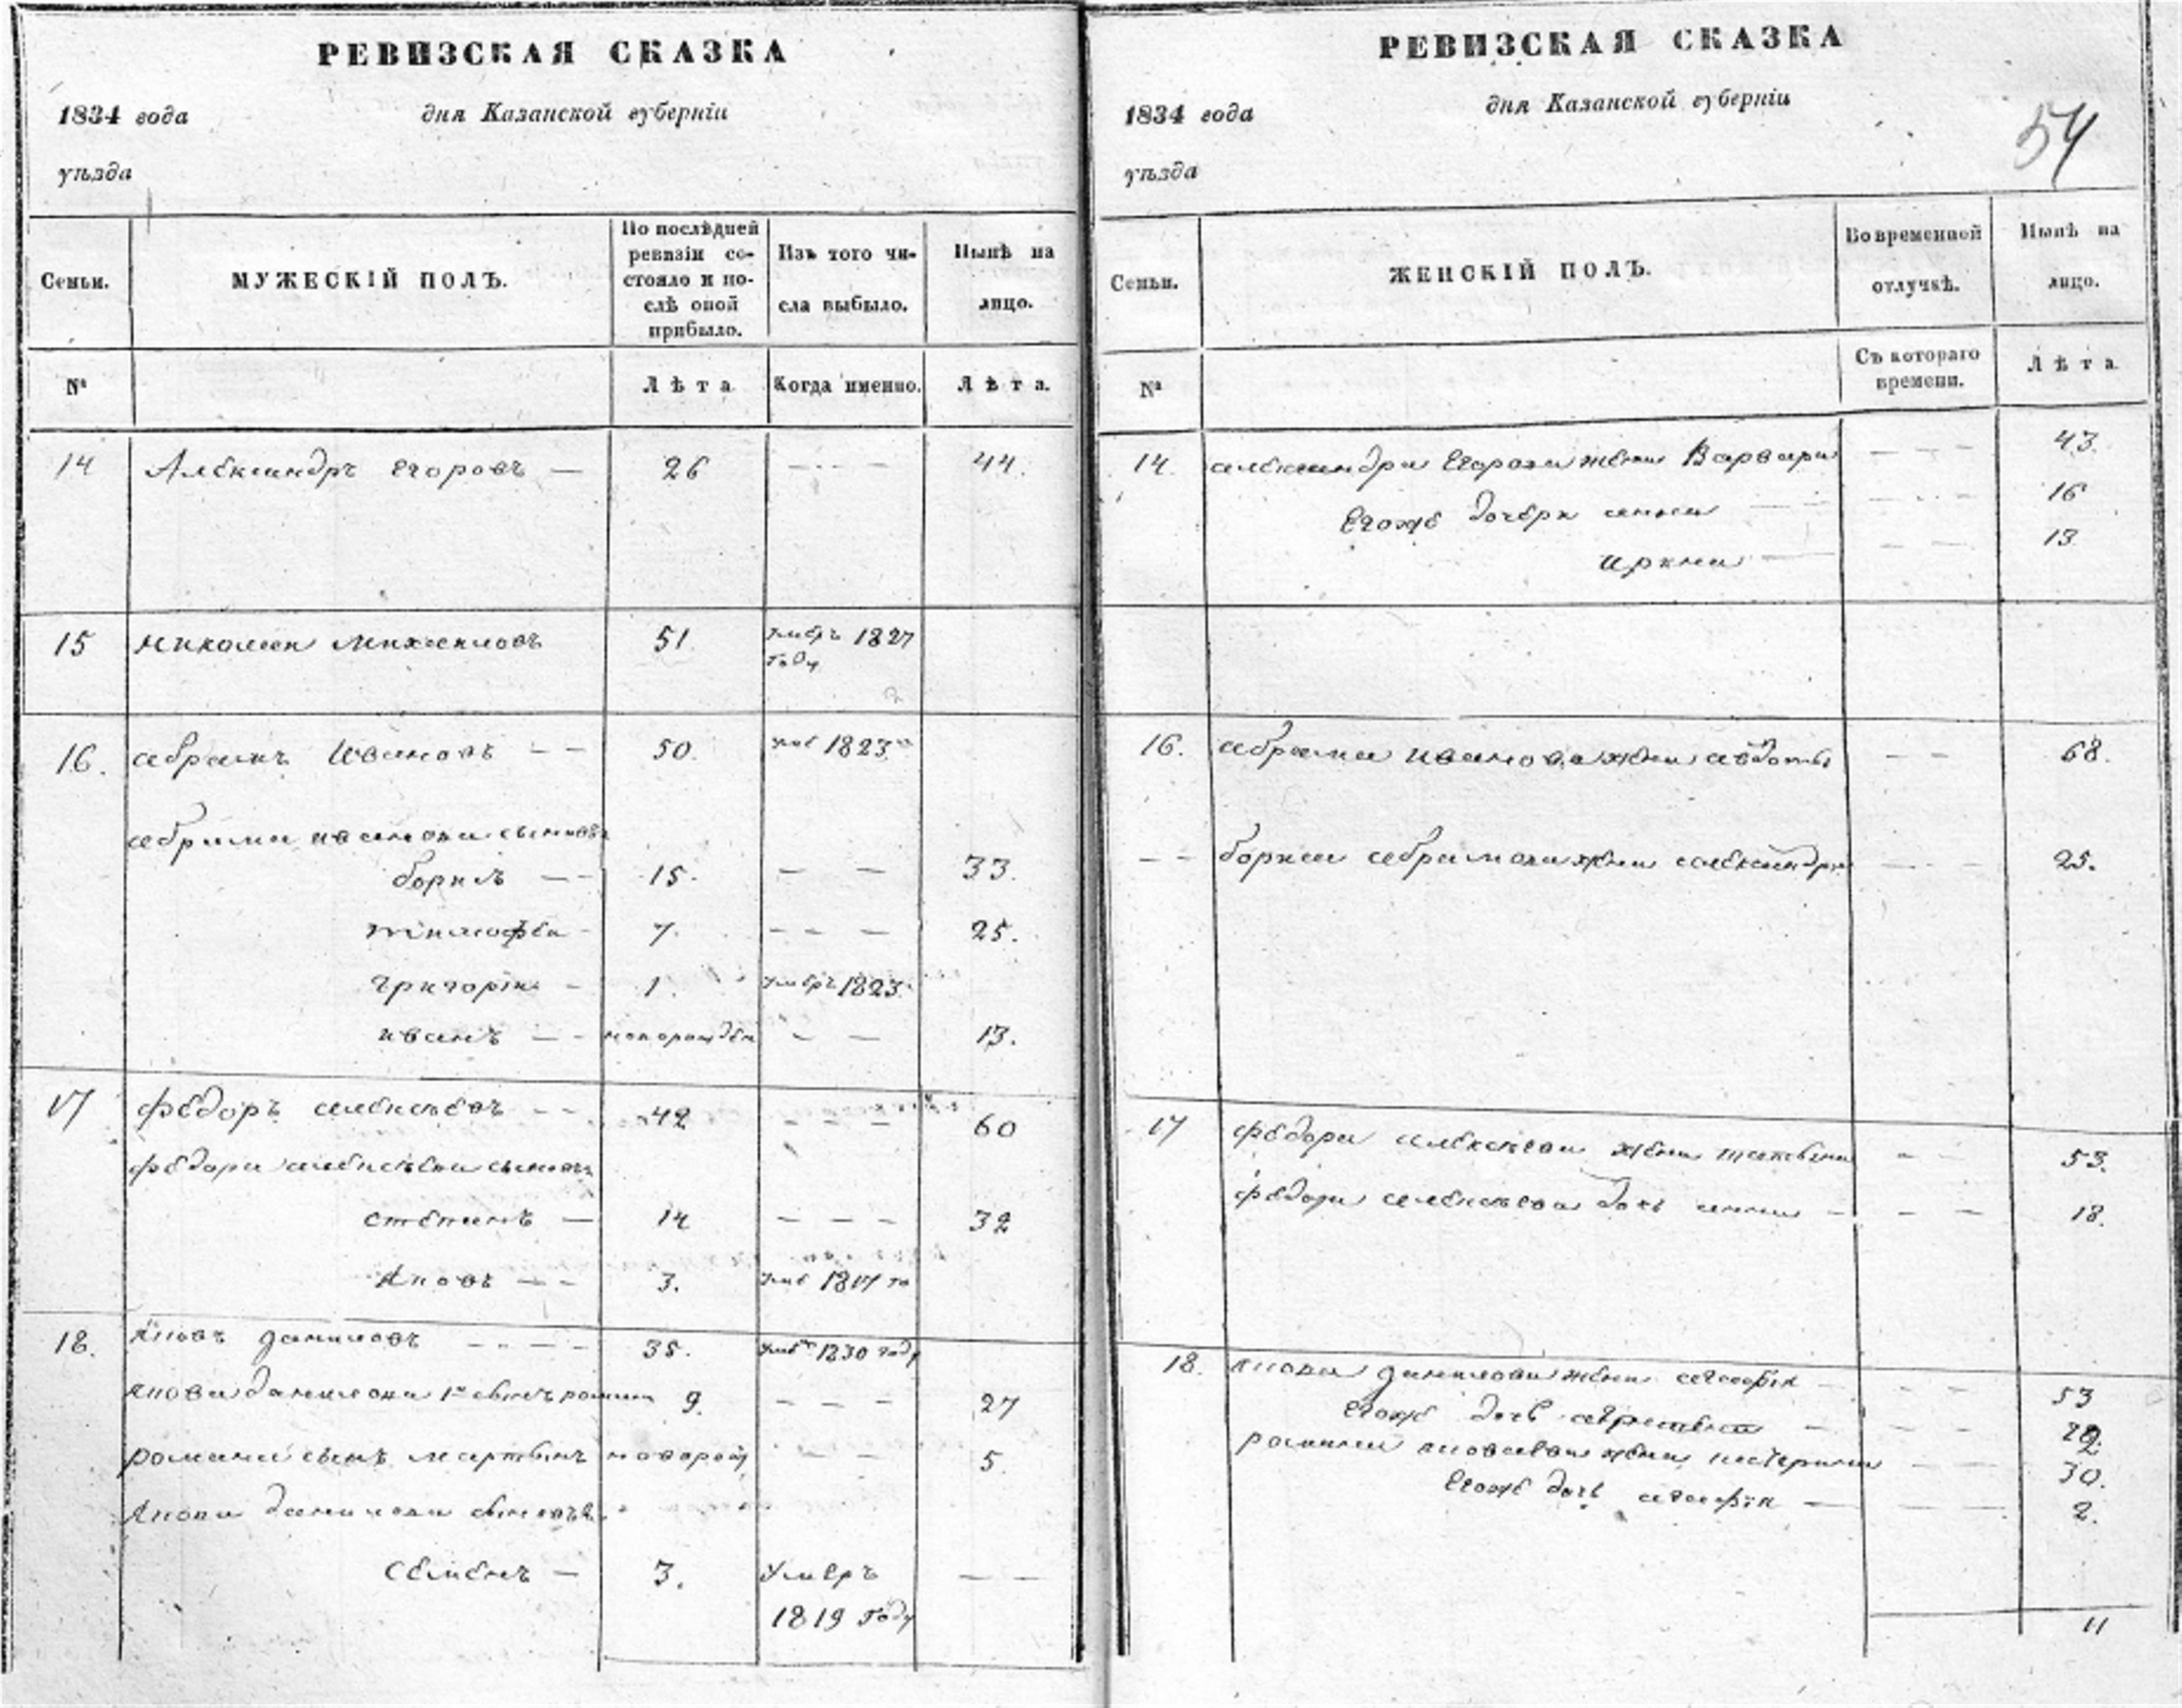 РЕВИЗСКАЯ СКАЗКА
1834 года дня Казанской губерніи
уѣзда
Семьи.
МУЖЕСКІЙ ПОЛЪ.
По послѣдней
ревизіи со-
стояло и по-
слѣ оной
прибыло.
Изъ того чи-
сла выбыло.
Нынѣ на
лицо.
№
Лѣта
Когда именно.
Лѣта.
14 Александръ Егоровъ — 26 - - - 44.
15 николаи михаиловъ 51. умеръ 1827
году
16. абрамъ Ивановъ - - 50. уме 1823
абрама иванова сыновья
борисъ — 15. — — 33.
тимофеи - 7. - - — 25.
григоріи - 1. умеръ 1823
иванъ — - новорожден - — 13.
17 федоръ алексѣевъ - - 42 - - - 60
федора алексѣева сыновья
степанъ — 14 - - - 32
Яковъ — - 3. уме 1817 го
18. яковъ даниловъ - - - - 35. умеръ 1830 году
якова данилова 1й сынъ романъ 9. - - - 27
романа сынъ мартынъ новорож - - 5.
якова данилова сыновья
семенъ — 3. Умеръ — —
1819 году
РЕВИЗСКАЯ СКАЗКА
1834 года дня Казанской губерніи
54
уѣзда
Семьи.
ЖЕНСКІЙ ПОЛЪ.
Во временной
отлучкѣ.
Нынѣ на
лицо.
№
Съ котораго
времени.
Лѣта.
14. александра Егорова жена Варвара - - - 43.
Егоже дочери анна - - - 16
ирина - - 13
16. абрама иванова жена авдотья — - 68.
- - бориса абрамова жена александра - - 25.
17 федора алексѣева жена татьяна - - 53.
федора алексѣева дочь анна - - - 18.
18. якова данилова жена агафія - - 53
Егоже дочь
романа яковлева жена катерина - - 30.
Егоже дочь агафія — - 2.
11